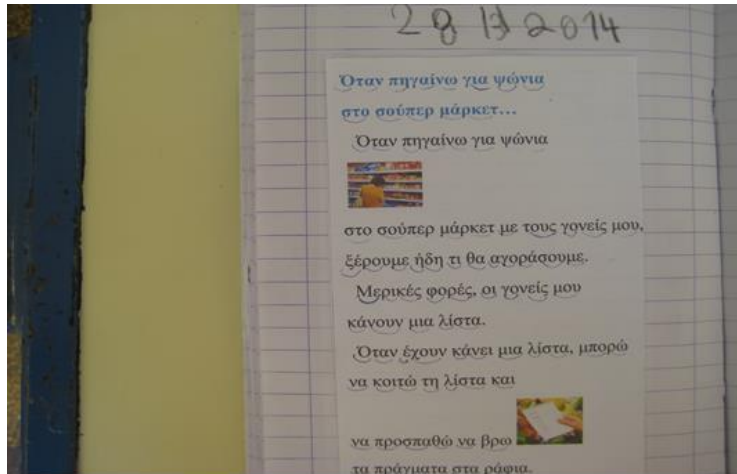 28 2014
Όταν πηγαίνω για ψώνια
στο σούπερ μάρκετ...
Όταν πηγαίνω για ψώνια
στο σούπερ μάρκετ με τους γονείς μου,
ξέρουμε ήδη τι θα αγοράσουμε.
Μερικές φορές, οι γονείς μου
κάνουν μια λίστα.
Όταν έχουν κάνει μια λίστα, μπορώ
να κοιτώ τη λίστα και
να προσπαθώ να βρω
τα πράγματα στα ράφια.